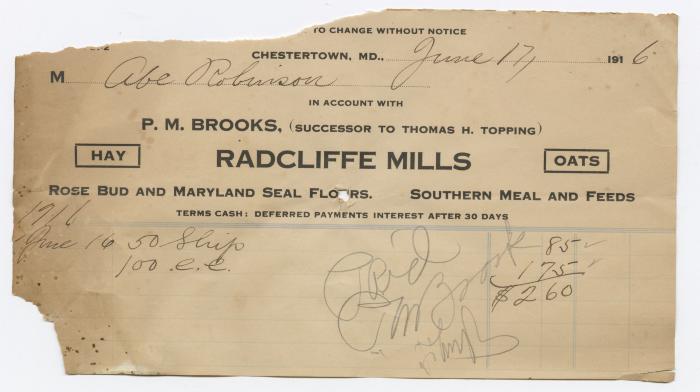 TO CHANGE WITHOUT NOTICE
CHESTERTOWN, MD., June 17, 1916
M Abe Robinson
IN ACCOUNT WITH
P. M. BROOKS, (SUCCESSOR TO THOMAS H. TOPPING)
HAY RADCLIFFE MILLS OATS
ROSE BUD AND MARYLAND SEAL FLOURS. SOUTHERN MEAL AND FEEDS
TERMS CASH: DEFERRED PAYMENTS INTEREST AFTER 30 DAYS
1916
June 16 50 Ship 85
100 c.c. 175
$260
Pai'd
PM Brook